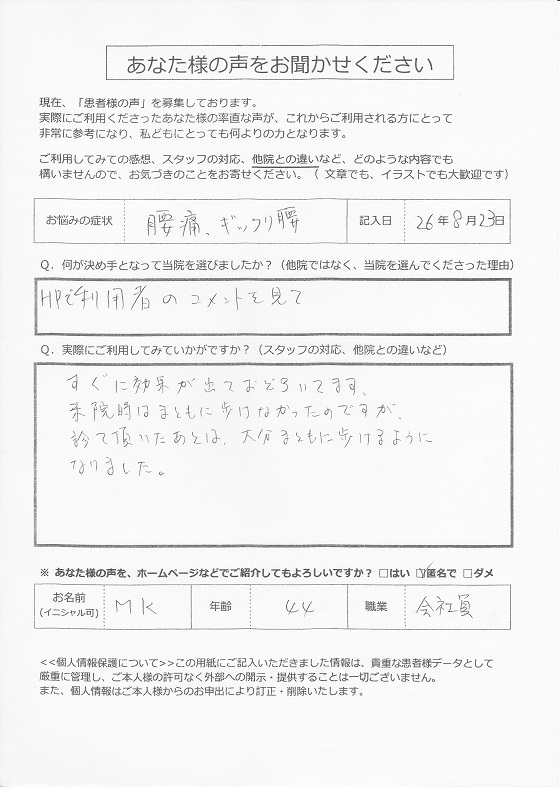 あなた様の声をお聞かせください
現在、「患者様の声」を募集しております。
実際にご利用くださったあなた様の率直な声が、これからご利用される方にとって
非常に参考になり、私どもにとっても何よりの力となります。
ご利用してみての感想、スタッフの対応、他院との違いなど、どのような内容でも
構いませんので、お気づきのことをお寄せください。（ 文章でも、イラストでも大歓迎です）
お悩みの症状 腰痛、ギックリ腰 記入日 26年8月23日
Q．何が決め手となって当院を選びましたか？（他院ではなく、当院を選んでくださった理由）
HPで利用者のコメントを見て
Q．実際にご利用してみていかがですか？（スタッフの対応、他院との違いなど）
すぐに効果が出ておどろいてます。
来院時はまともに歩けなかったのですが、
診て頂いたあとは、大分まともに歩けるように
なりました。
※ あなた様の声を、ホームページなどでご紹介してもよろしいですか？ □はい ☑匿名で □ダメ
お名前 (イニシャル可) MK 年齢 44 職業 会社員
<<個人情報保護について>>この用紙にご記入いただきました情報は、貴重な患者様データとして
厳重に管理し、ご本人様の許可なく外部への開示・提供することは一切ございません。
また、個人情報はご本人様からのお申出により訂正・削除いたします。